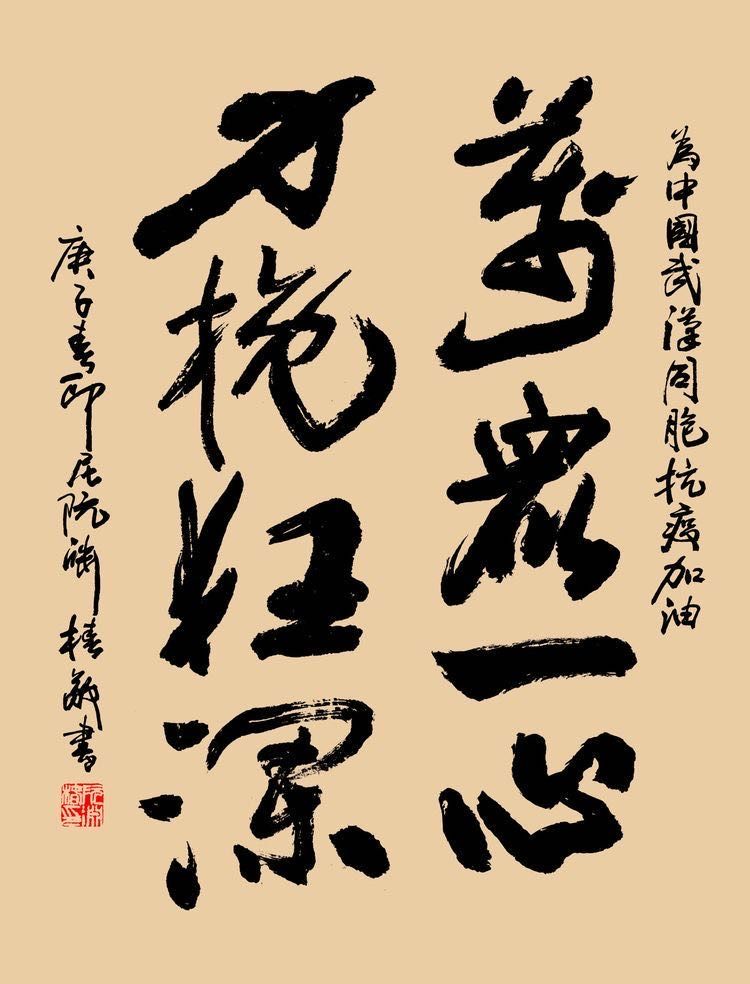 為中國武漢同胞抗疫加油
萬眾一心
力挽狂瀾
庚子春邱居阮淵椿敬書